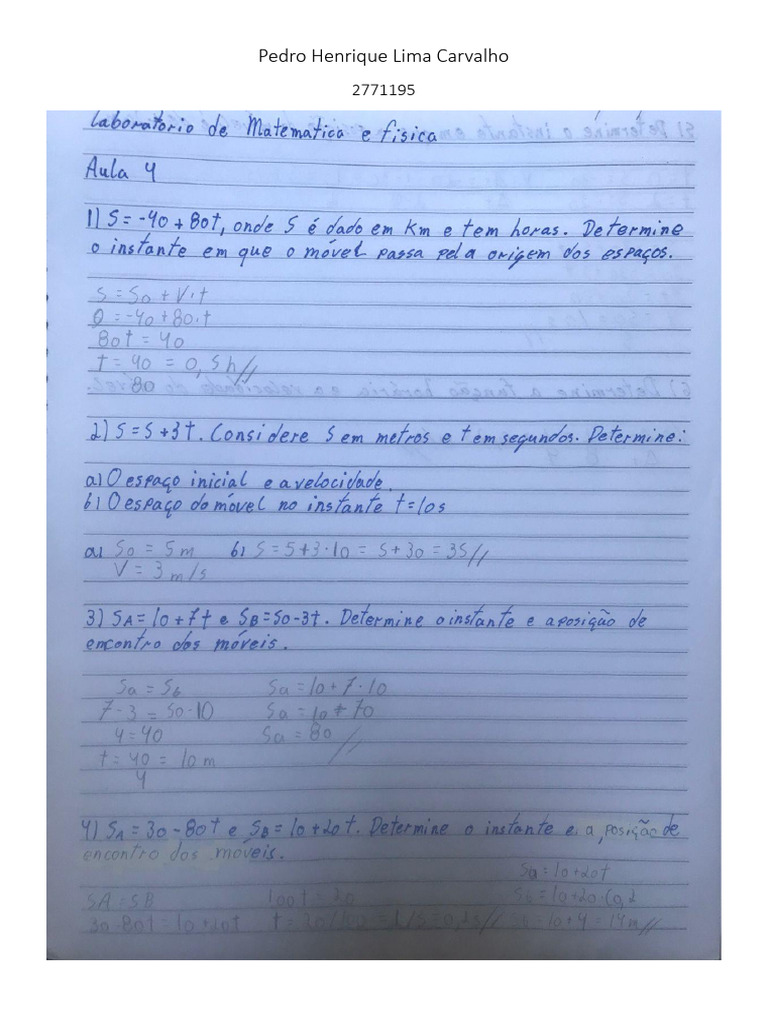 Pedro Henrique Lima Carvalho
2771195
Laboratorio de Matematica e fisica
Aula 4
1) S = -40 + 80t, onde S é dado em Km e t em horas. Determine
o instante em que o móvel passa pela origem dos espaços.
S = So + V.t
0 = -40 + 80.t
80t = 40
t = 40 = 0,5h//
80
2) S = 5 + 3t. Considere S em metros e t em segundos. Determine:
a) O espaço inicial e a velocidade.
b) O espaço do móvel no instante t = 10s
a) So = 5m b) S = 5 + 3.10 = 5 + 30 = 35//
V = 3 m/s
3) SA = 10 + 7t e SB = 50 - 3t. Determine o instante e a posição de
encontro dos móveis.
Sa = Sb Sa = 10 + 7.10
7 - 3 = 50 - 10 Sa = 10 + 70
4 = 40 Sa = 80 //
t = 40 = 10 m
4
4) SA = 30 - 80t e SB = 10 + 20t. Determine o instante e a posição de
encontro dos móveis.
Sa = 10 + 20t
SA = SB 100t = 20 Sb = 10 + 20.(0,2
30 - 80t = 10 + 20t t = 20/100 = 1/5 = 0,2s// Sb = 10 + 4 = 14m//